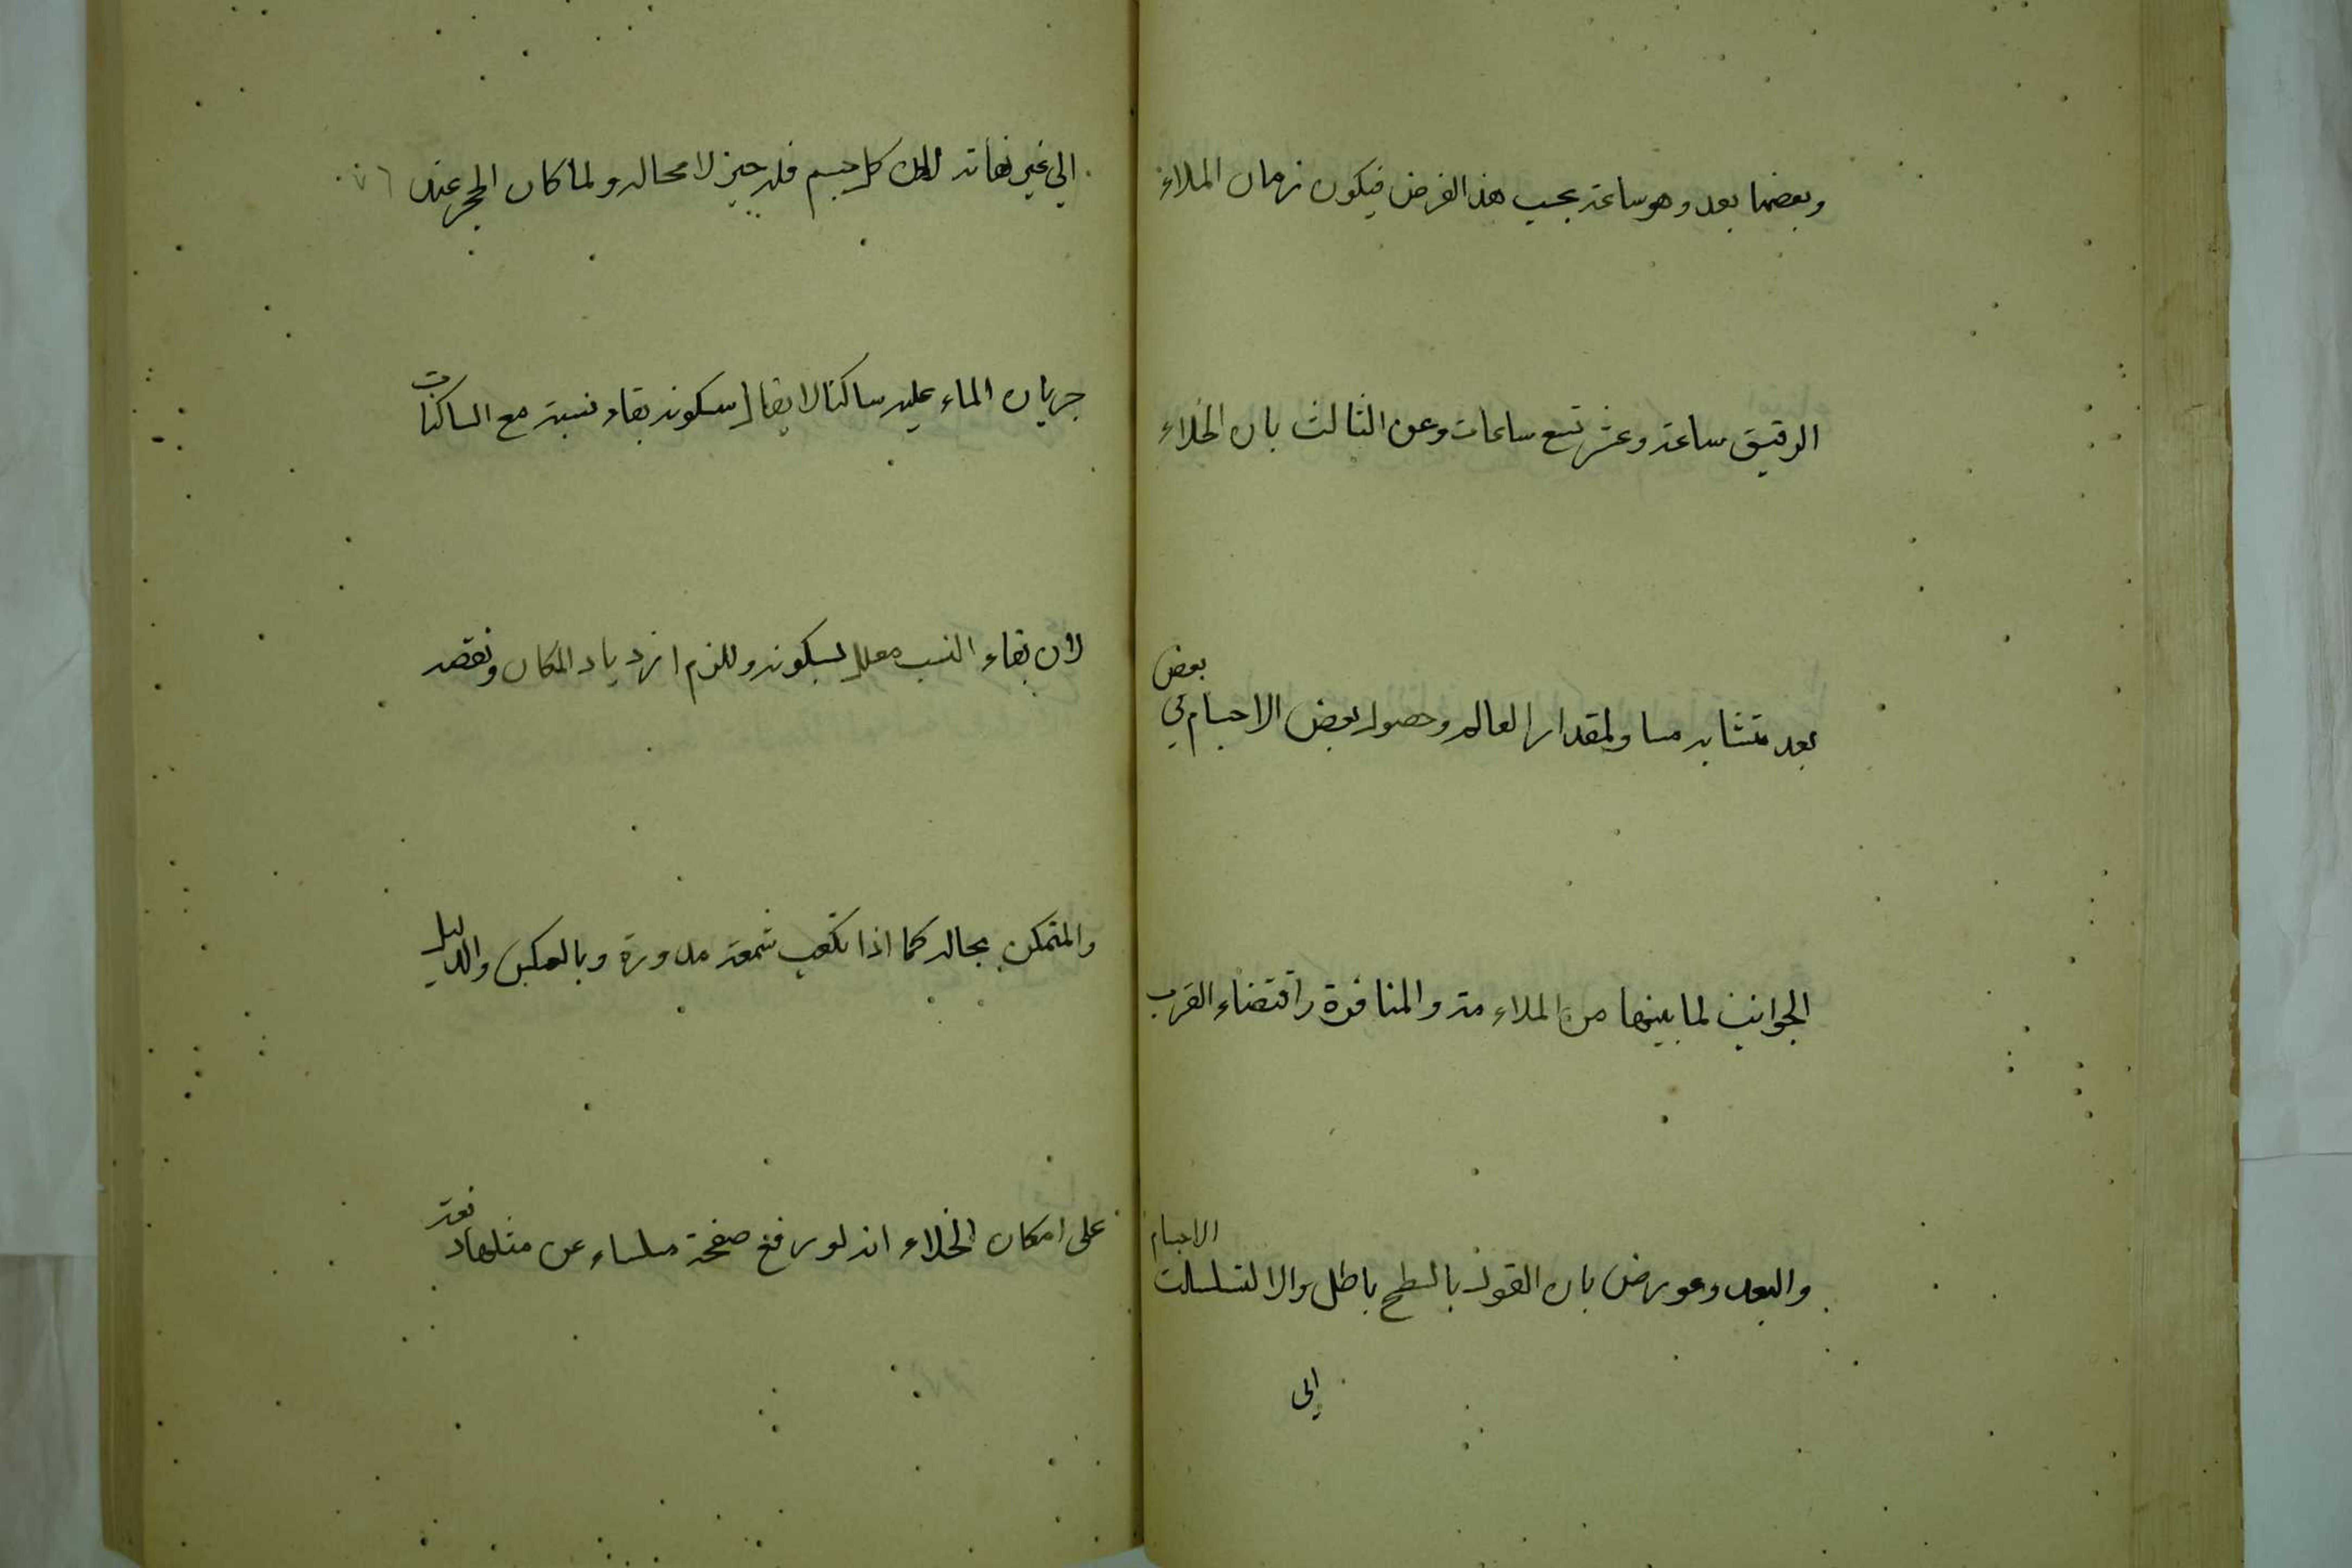 وبعضها بعده وهو ساعة بحسب هذا الفرض فيكون زمان الملاء
الرقيق ساعة وعشر تسع ساعات وعن الثالث بان الخلاء
بعد متشابه مساو لمقدار العالم وحصول بعض الاجسام في بعض
الجوانب لما بينها من الملاءمة والمنافرة واقتضاء القرب
والبعد وعورض بان القول بالسطح باطل والا لتسلسلت الاجسام
الى
الى غير نهاية لان كل جسم فله حيز لا محالة ولما كان الحجر عند
جريان الماء عليه ساكنا لا يقال سكونه بقاء نسبته مع الساكنات
لان بقاء النسب معلل بسكونه وللزم ازدياد المكان ونقصه
والمتمكن بحاله كما اذا تكعب شمعة مدورة وبالعكس والدليل
على امكان الخلاء انه لو رفع صفحة ملساء عن مثلها دفعة